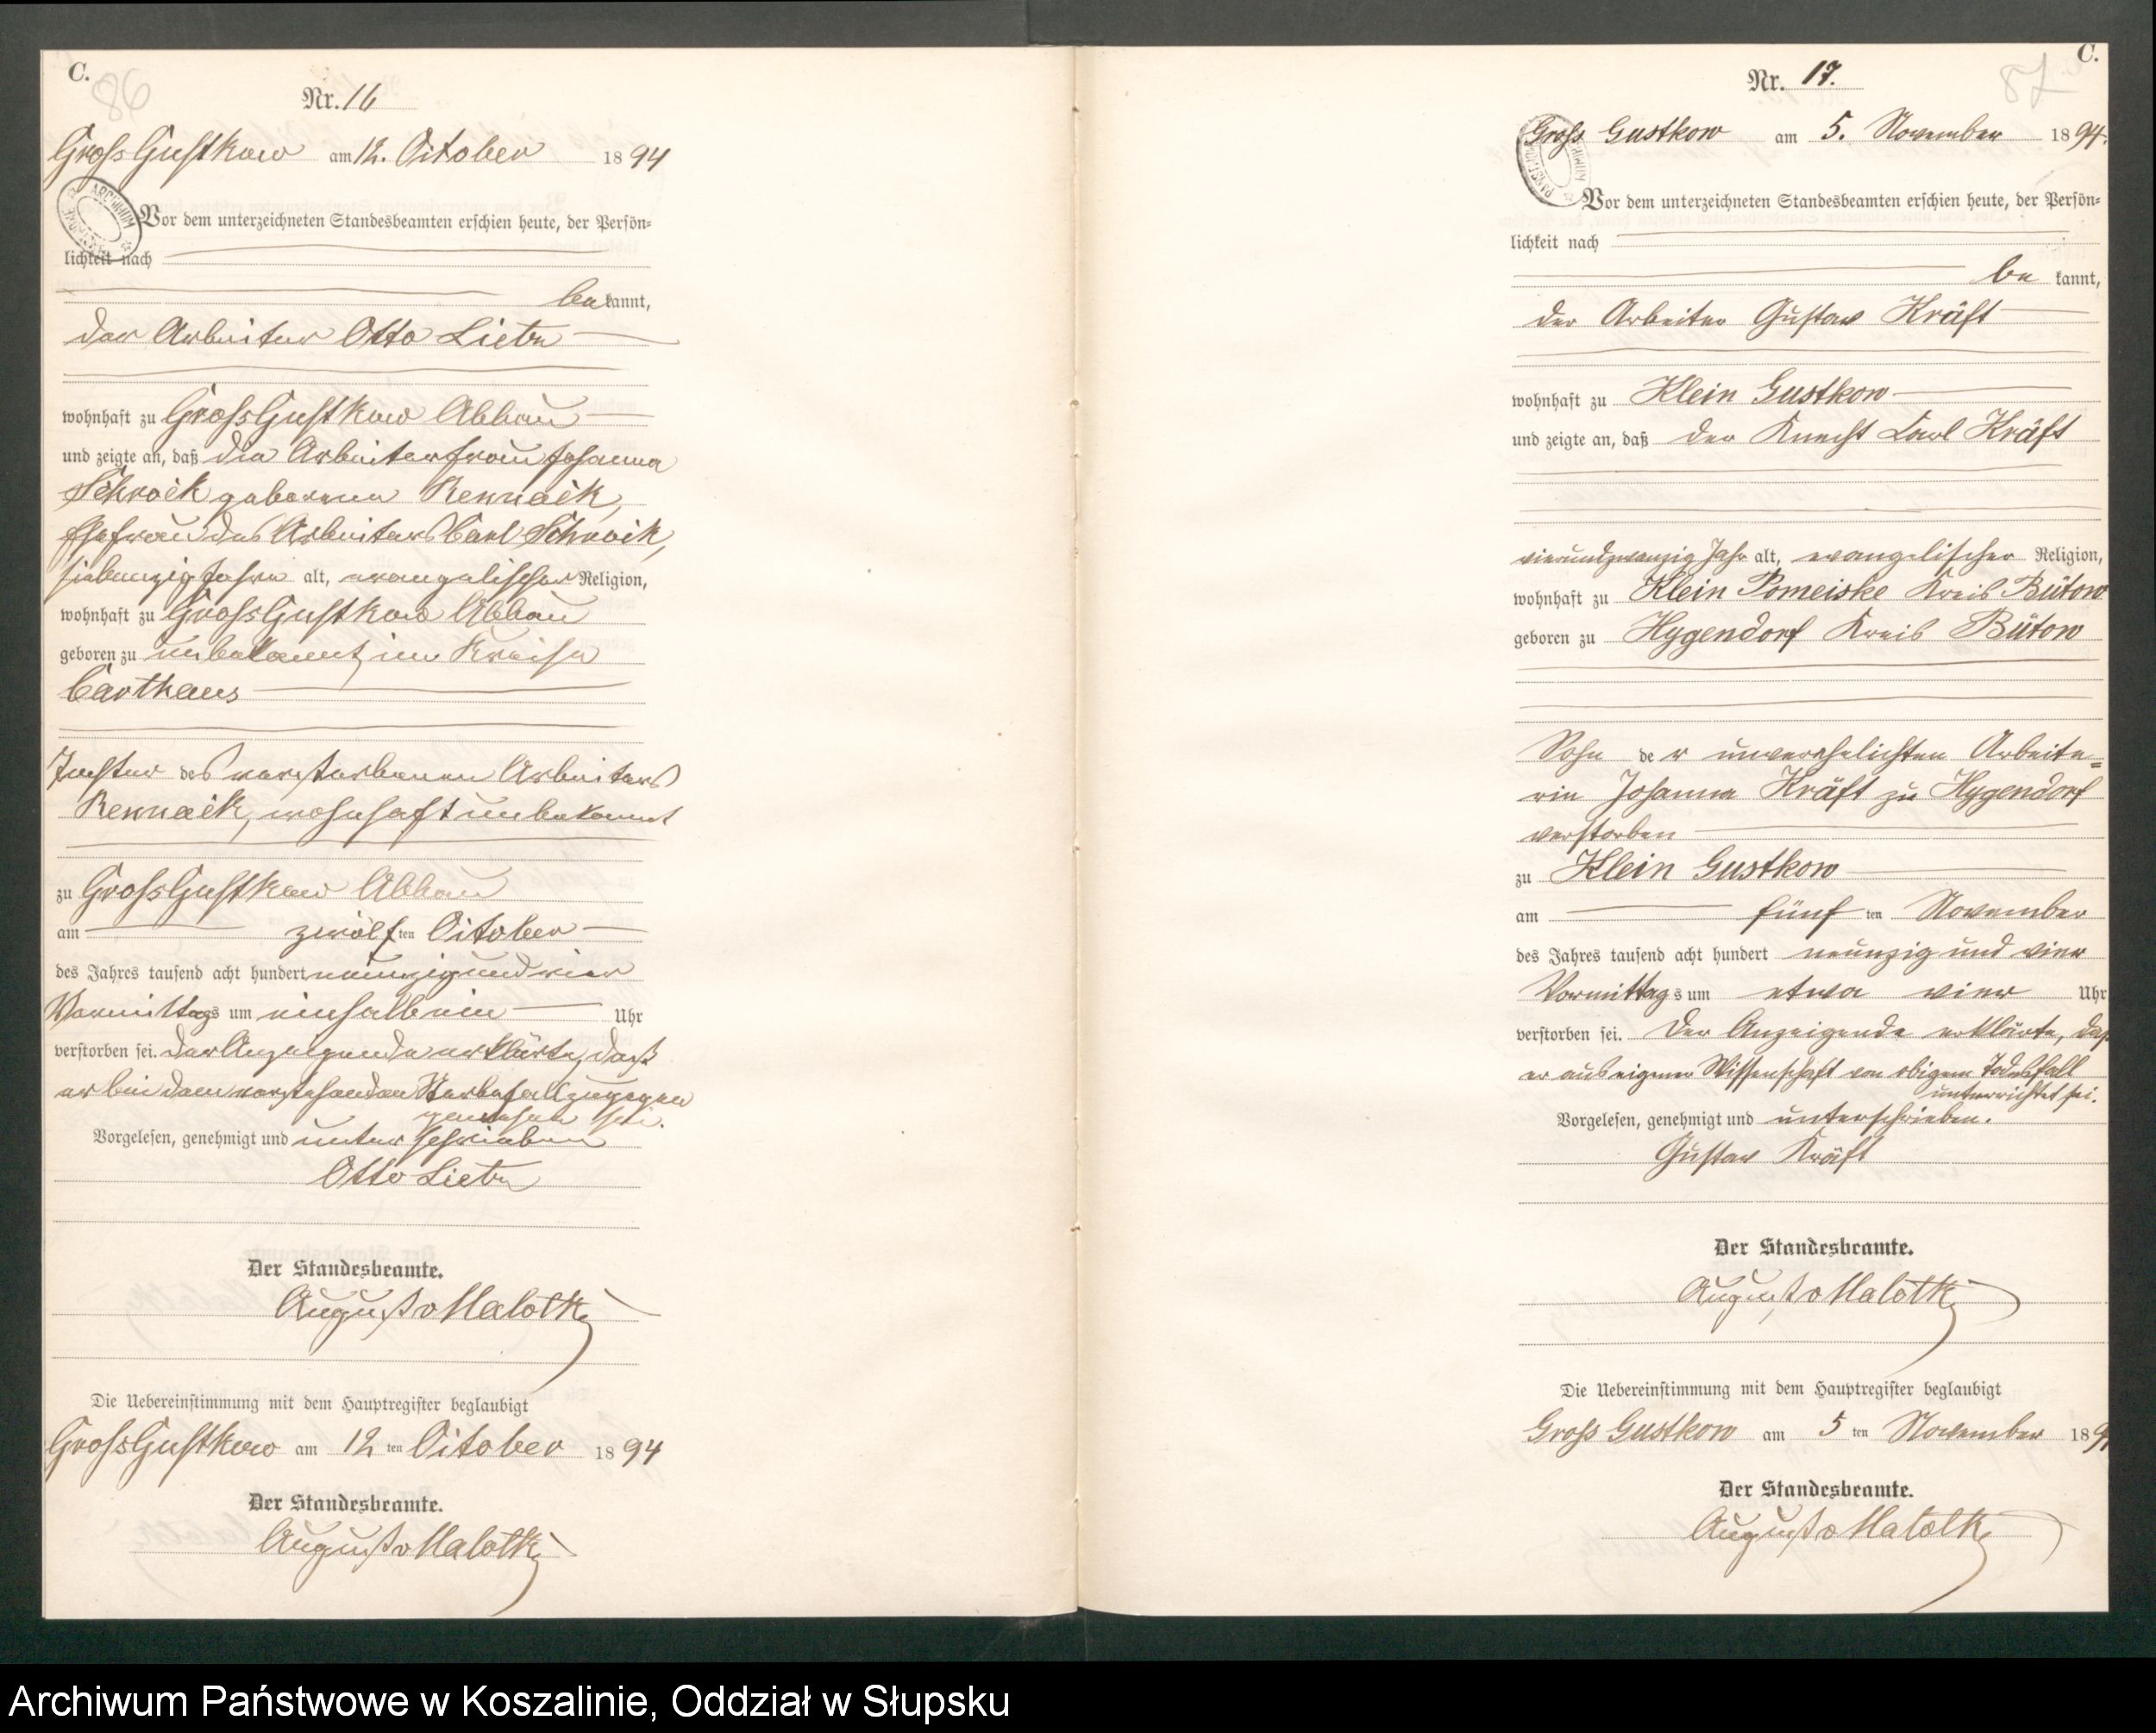 C.
86
Nr. 16
Gross Gustkow am 12. October 1894
ARCHIWUM
Vor dem unterzeichneten Standesbeamten erschien heute, der Persön-
lichkeit nach
be kannt,
der Arbeiter Otto Lietz
wohnhaft zu Gross Gustkow Abbau
und zeigte an, daß die Arbeiterfrau Johanna
Schrock geborene
Ehefrau des Arbeiters Carl Schrock,
siebenzig Jahre alt, evangelischer Religion,
wohnhaft zu Gross Gustkow Abbau
geboren zu unbekannt, im Kreise
Carthaus
Tochter des verstorbenen Arbeiters
wohnhaft unbekannt
zu Gross Gustkow Abbau
am zwölf ten October
des Jahres tausend acht hundert neunzig und vier
Vormittags um einhalb ein Uhr
verstorben sei. Der Anzeigende erklärte, daß
er bei dem vorstehenden Sterbefall zugegen
gewesen sei.
Vorgelesen, genehmigt und unterschrieben
Otto Lietz
Der Standesbeamte.
August v Malottki
Die Uebereinstimmung mit dem Hauptregister beglaubigt
Gross Gustkow am 12 ten October 1894
Der Standesbeamte.
August v Malottki
C.
87
Nr. 17.
Gross Gustkow am 5. November 1894.
Vor dem unterzeichneten Standesbeamten erschien heute, der Persön-
lichkeit nach
be kannt,
der Arbeiter Gustav Kräft
wohnhaft zu Klein Gustkow
und zeigte an, daß der Knecht Carl Kräft
vierundzwanzig Jahr alt, evangelischer Religion,
wohnhaft zu Klein Pomeiske Kreis Bütow
geboren zu Hygendorf Kreis Bütow
Sohn der unverehelichten Arbeite=
rin Johanna Kräft zu Hygendorf
verstorben
zu Klein Gustkow
am fünf ten November
des Jahres tausend acht hundert neunzig und vier
Vormittags um etwa vier Uhr
verstorben sei. Der Anzeigende erklärte, daß
er aus eigener Wissenschaft von obigem Todesfall
unterrichtet sei.
Vorgelesen, genehmigt und unterschrieben.
Gustav Kräft
Der Standesbeamte.
August v Malottki
Die Uebereinstimmung mit dem Hauptregister beglaubigt
Gross Gustkow am 5 ten November 189
Der Standesbeamte.
August v Malottki
Archiwum Państwowe w Koszalinie, Oddział w Słupsku